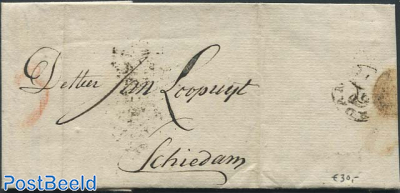 De Heer Jan Loopuyt
Schiedam
€30,-
PostBeeld